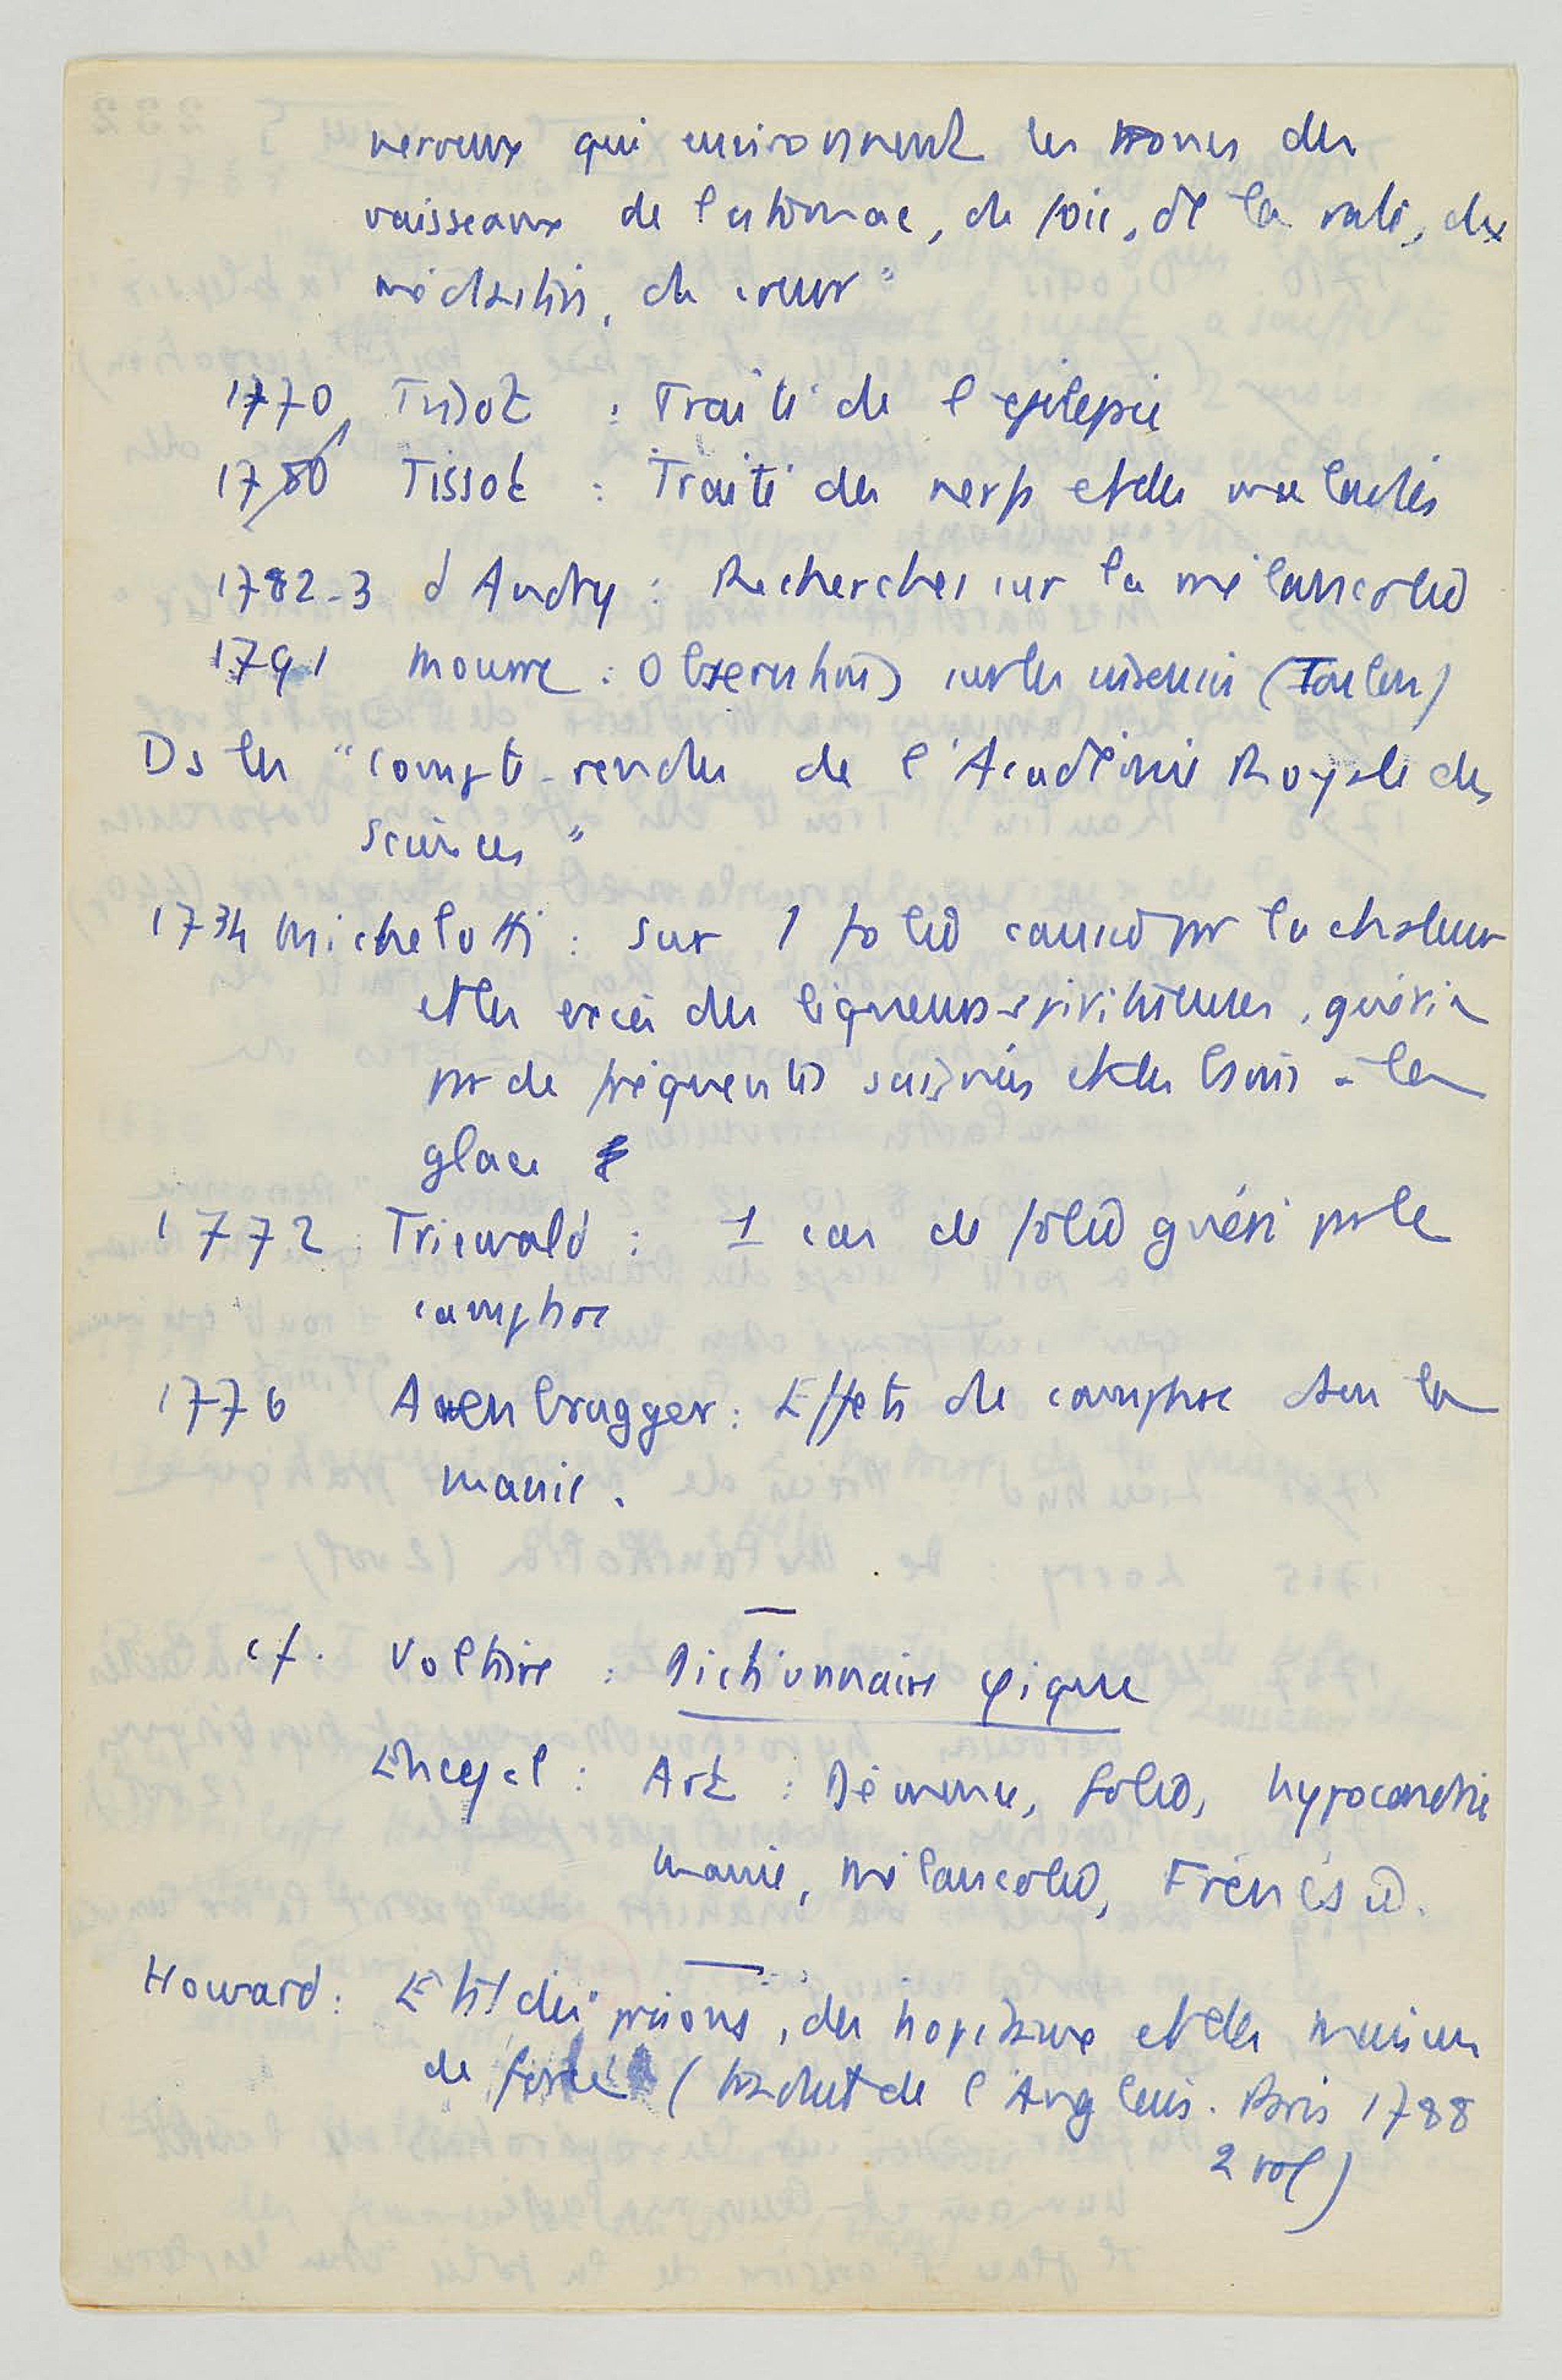 nerveux qui environnent les troncs des
vaisseaux de l'estomac, du foie, de la rate, du
médiastin, du cœur"
1770 Tissot : Traité de l'epilepsie
1780 Tissot : Traité des nerfs et des maladies
1782-3 d'Andry : Recherches sur la mélancolie
1791 Mourre : Observations sur les insensés (Toulon)
Ds les "compte-rendus de l'Académie Royale des
Sciences"
1734 Michelotti : Sur 1 folie causée par la chaleur
et les excès des liqueurs spiritueuses, guérie
par de fréquentes saignées et des bains à la
glace
1772 Triewald : 1 cas de folie guéri par le
camphre
1776 Auenbrugger : Effets du camphre dans la
manie.
cf. Voltaire : Dictionnaire φique
Encycl : Art : Démence, folie, hypocondrie
manie, mélancolie, Frénésie.
Howard : Etat des prisons, des hopitaux et des maisons
de force (traduit de l'Anglais. Paris 1788
2 vol)